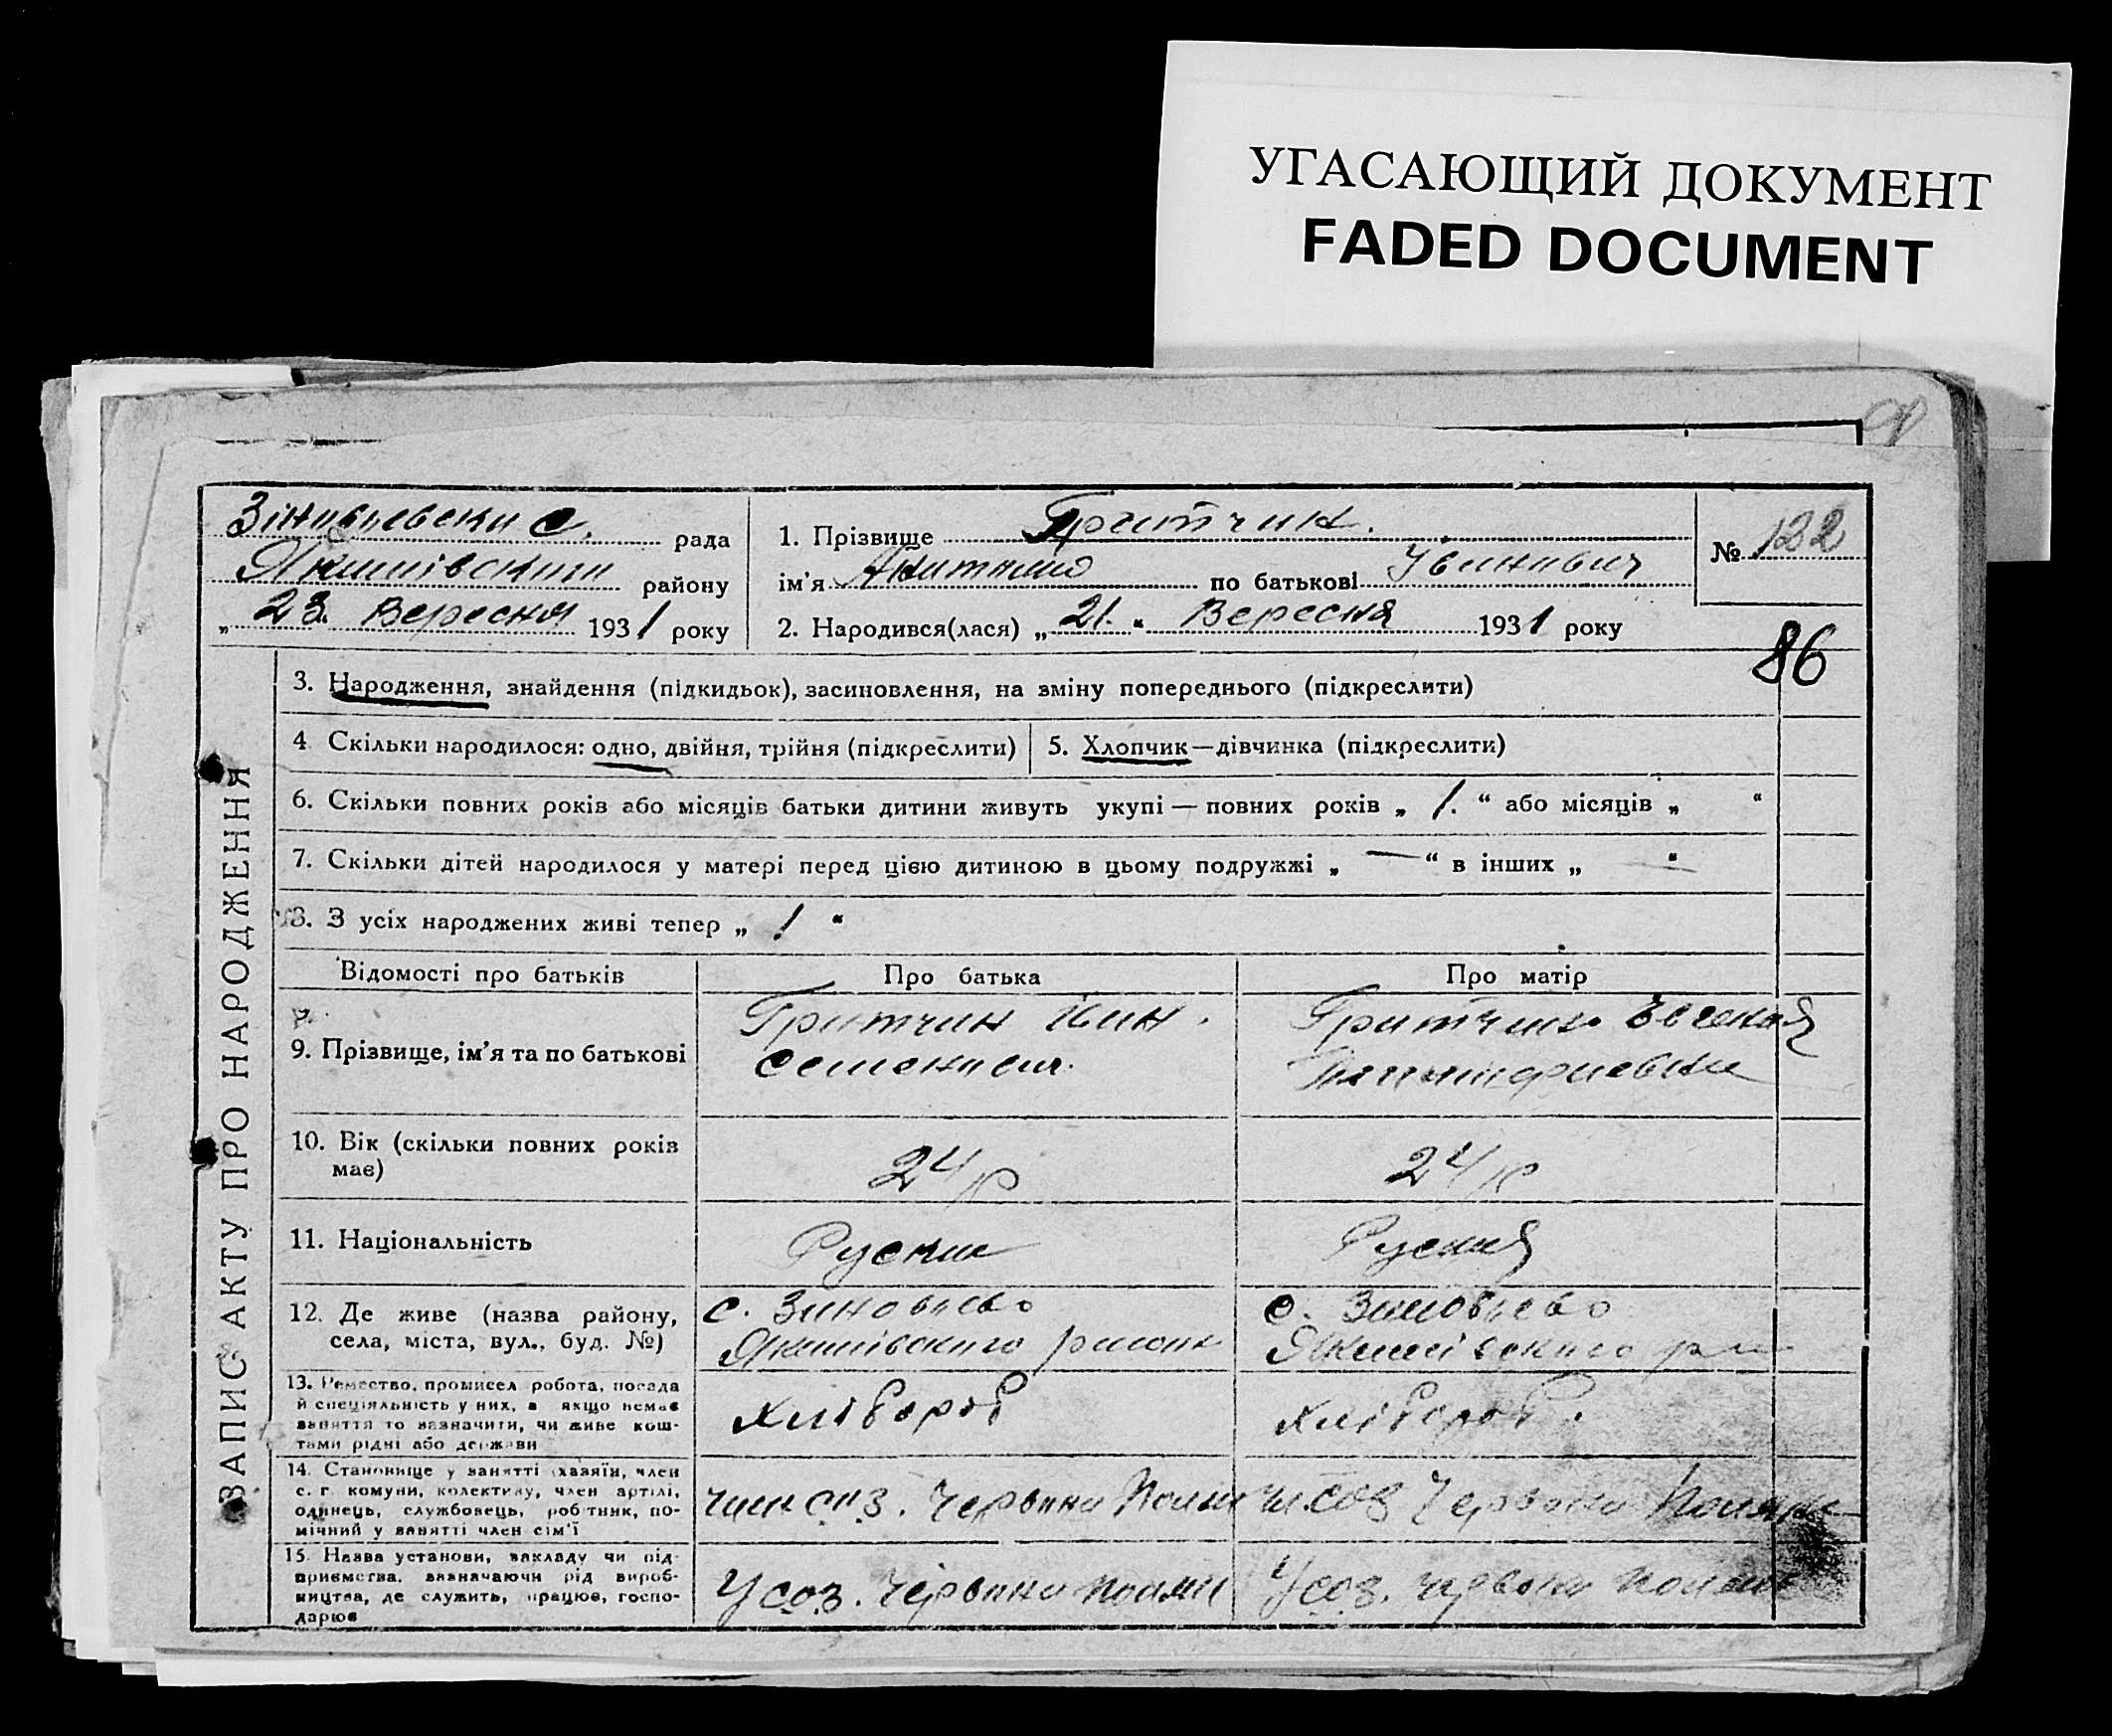 УГАСАЮЩИЙ ДОКУМЕНТ
FADED DOCUMENT
рада
району
„ 23. Вересня 1931 року
1. Прізвище Гритчин.
ім’я по батькові
2. Народився(лася) „ 21. “ Вересня 1931 року
№ 132
86
ЗАПИС АКТУ ПРО НАРОДЖЕННЯ
3. Народження, знайдення (підкидьок), засиновлення, на зміну попереднього (підкреслити)
4. Скільки народилося: одно, двійня, трійня (підкреслити)
5. Хлопчик—дівчинка (підкреслити)
6. Скільки повних років або місяців батьки дитини живуть укупі — повних років „ 1. “ або місяців „ “
7. Скільки дітей народилося у матері перед цією дитиною в цьому подружжі „ — “ в інших „ — “
8. З усіх народжених живі тепер „ 1 “
Відомості про батьків
Про батька
Про матір
9. Прізвище, ім’я та по батькові
Гритчин
Гритчин
10. Вік (скільки повних років
має)
24/р
24/р
11. Національність
Руский
Руская
12. Де живе (назва району,
села, міста, вул., буд. №)
с. Зиновьево
Якимівского
с. Зиновьево
Якимівского
13. Ремество, промисел робота, посада
й спеціяльність у них, а якщо немає
заняття то зазначити, чи живе кош-
тами рідні або держави
Хлібороб
Хлібороб.
14. Становище у занятті (хазяїн, член
с. г. комуни, колективу, член артілі,
одинець, службовець, робітник, по-
мічний у занятті член сім’ї
член соз. Червони
чл. соз Червони
15. Назва установи, закладу чи під-
приємства, зазначаючи рід вироб-
ництва, де служить, працює, госпо-
дарює
У соз. Червони
У соз. Червони